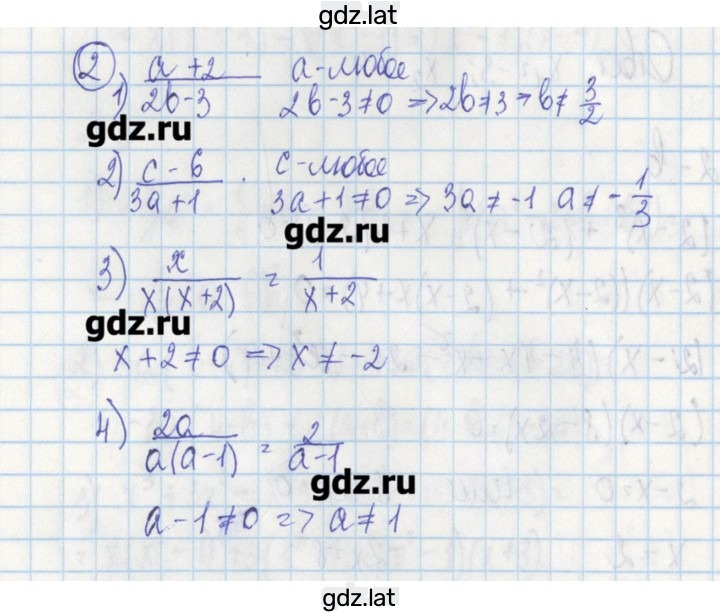 gdz.lat
② a + 2 / a - любое
1) 2b - 3 2b - 3 ≠ 0 => 2b ≠ 3 → b ≠ 3/2
gdz.ru
2) c - 6 / 3a + 1 . c - любое
3a + 1 ≠ 0 => 3a ≠ -1 a ≠ - 1/3
gdz.ru
3) x / x(x+2) = 1 / x+2
gdz.ru
x + 2 ≠ 0 => x ≠ -2
4) 2a / a(a-1) = 2 / a-1
gdz.ru
a - 1 ≠ 0 => a ≠ 1
gdz.lat